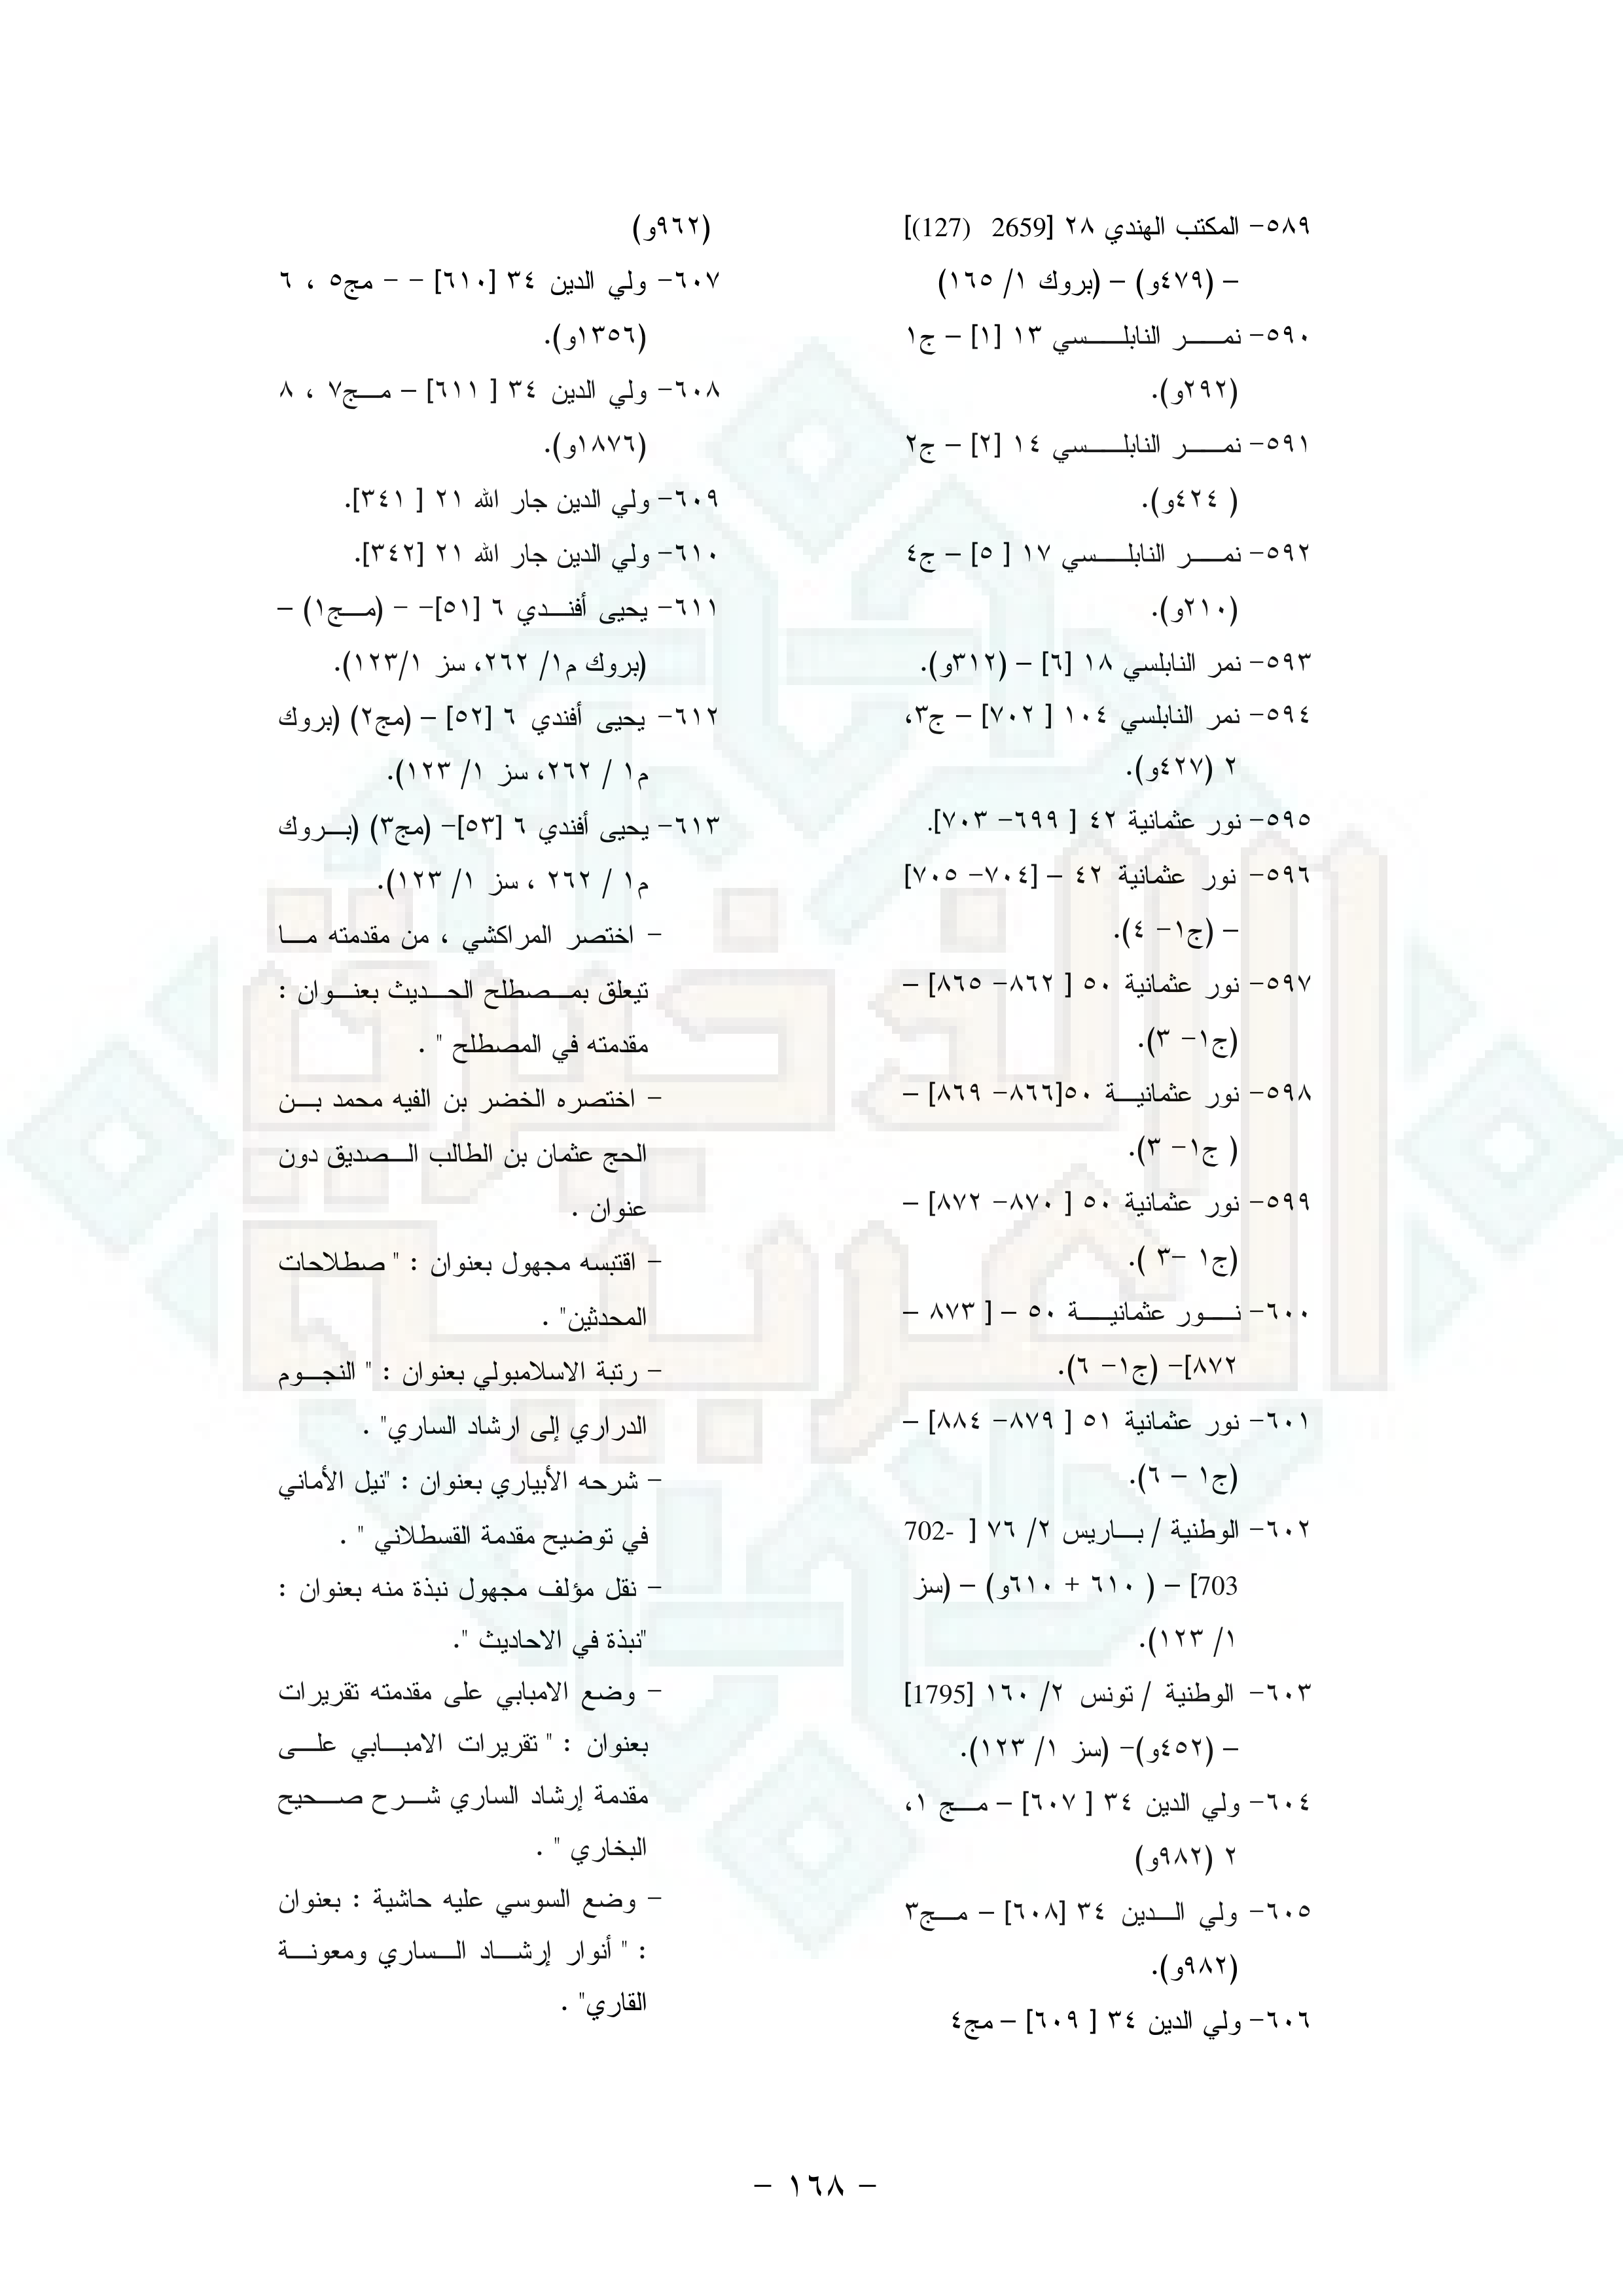 ٥٨٩- المكتب الهندي ٢٨ [2659 (127)]
– (٤٧٩و) – (بروك ١/ ١٦٥)
٥٩٠- نمر النابلسي ١٣ [١] – ج١
(٢٩٢و).
٥٩١- نمر النابلسي ١٤ [٢] – ج٢
( ٤٢٤و).
٥٩٢- نمر النابلسي ١٧ [ ٥] – ج٤
(٢١٠و).
٥٩٣- نمر النابلسي ١٨ [٦] – (٣١٢و).
٥٩٤- نمر النابلسي ١٠٤ [ ٧٠٢] – ج٣،
٢ (٤٢٧و).
٥٩٥- نور عثمانية ٤٢ [ ٦٩٩- ٧٠٣].
٥٩٦- نور عثمانية ٤٢ – [٧٠٤- ٧٠٥]
– (ج١- ٤).
٥٩٧- نور عثمانية ٥٠ [ ٨٦٢- ٨٦٥] –
(ج١- ٣).
٥٩٨- نور عثمانية ٥٠[٨٦٦- ٨٦٩] –
( ج١- ٣).
٥٩٩- نور عثمانية ٥٠ [ ٨٧٠- ٨٧٢] –
(ج١ -٣ ).
٦٠٠- نور عثمانية ٥٠ – [ ٨٧٣ –
٨٧٢]- (ج١- ٦).
٦٠١- نور عثمانية ٥١ [ ٨٧٩- ٨٨٤] –
(ج١ – ٦).
٦٠٢- الوطنية / باريس ٢/ ٧٦ [ 702-
703] – ( ٦١٠ + ٦١٠و) – (سز
١/ ١٢٣).
٦٠٣- الوطنية / تونس ٢/ ١٦٠ [1795]
– (٤٥٢و)- (سز ١/ ١٢٣).
٦٠٤- ولي الدين ٣٤ [ ٦٠٧] – مج ١،
٢ (٩٨٢و)
٦٠٥- ولي الدين ٣٤ [٦٠٨] – مج٣
(٩٨٢و).
٦٠٦- ولي الدين ٣٤ [ ٦٠٩] – مج٤
(٩٦٢و)
٦٠٧- ولي الدين ٣٤ [٦١٠] - - مج٥ ، ٦
(١٣٥٦و).
٦٠٨- ولي الدين ٣٤ [ ٦١١] – مج٧ ، ٨
(١٨٧٦و).
٦٠٩- ولي الدين جار الله ٢١ [ ٣٤١].
٦١٠- ولي الدين جار الله ٢١ [٣٤٢].
٦١١- يحيى أفندي ٦ [٥١]- - (مج١) –
(بروك م١/ ٢٦٢، سز ١/١٢٣).
٦١٢- يحيى أفندي ٦ [٥٢] – (مج٢) (بروك
م١ / ٢٦٢، سز ١/ ١٢٣).
٦١٣- يحيى أفندي ٦ [٥٣]- (مج٣) (بروك
م١ / ٢٦٢ ، سز ١/ ١٢٣).
- اختصر المراكشي ، من مقدمته ما
تيعلق بمصطلح الحديث بعنوان :
مقدمته في المصطلح " .
- اختصره الخضر بن الفيه محمد بن
الحج عثمان بن الطالب الصديق دون
عنوان .
- اقتبسه مجهول بعنوان : " صطلاحات
المحدثين" .
- رتبة الاسلامبولي بعنوان : " النجوم
الدراري إلى ارشاد الساري" .
- شرحه الأبياري بعنوان : "نيل الأماني
في توضيح مقدمة القسطلاني " .
- نقل مؤلف مجهول نبذة منه بعنوان :
"نبذة في الاحاديث ".
- وضع الامبابي على مقدمته تقريرات
بعنوان : " تقريرات الامبابي على
مقدمة إرشاد الساري شرح صحيح
البخاري " .
- وضع السوسي عليه حاشية : بعنوان
: " أنوار إرشاد الساري ومعونة
القاري" .
الذخيرة
العربية
- ١٦٨ -